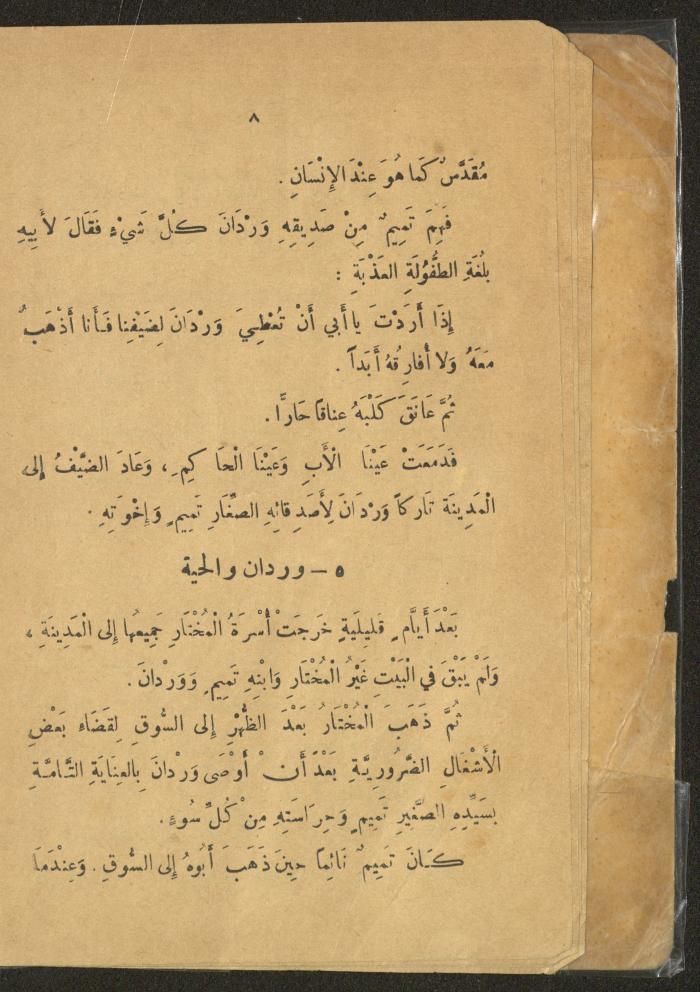 ٨
مُقَدَّسٌ كَمَا هُوَ عِنْدَ الإِنْسَانِ .
فَهِمَ تَمِيمٌ مِنْ صَدِيقِهِ وَرْدَانَ كُلَّ شَيْءٍ فَقَالَ لأَبِيهِ
بِلُغَةِ الطُّفُولَةِ العَذْبَةِ :
إِذَا أَرَدْتَ يا أَبي أَنْ تُعْطِيَ وَرْدَانَ لِضَيْفِنا فَأَنا أَذْهَبُ
مَعَهُ وَلا أُفارِقُهُ أَبَداً .
ثُمَّ عَانَقَ كَلْبَهُ عِناقاً حَارًّا .
فَدَمَعَتْ عَيْنَا الْأَبِ وَعَيْنَا الْحَاكِمِ ، وَعَادَ الضَّيْفُ إِلى
الْمَدِينَة تَارِكاً وَرْدَانَ لِأَصْدِقائِهِ الصِّغَارِ تَمِيمٍ وَإِخْوَتِهِ .
٥ – وردان والحية
بَعْدَ أَيَّامٍ قَلِيلَةٍ خَرَجَتْ أُسْرَةُ الْمُخْتَارِ جَمِيعُها إِلى الْمَدِينَةِ ،
وَلَمْ يَبْقَ في الْبَيْتِ غَيْرُ الْمُخْتَارِ وَابْنِهِ تَمِيمٍ وَوَرْدانَ .
ثُمَّ ذَهَبَ الْمُخْتَارُ بَعْدَ الظُّهْرِ إِلى السُّوقِ لِقَضَاءِ بَعْضِ
الْأَشْغَالِ الضَّرُورِيَّةِ بَعْدَ أَنْ أَوْصَى وَرْدانَ بِالعِنَايَةِ التَّامَّةِ
بِسَيِّدِهِ الصَّغِيرِ تَمِيمٍ وَحِرَاسَتِهِ مِنْ كُلِّ سُوءٍ .
كَانَ تَمِيمٌ نَائِمًا حِينَ ذَهَبَ أَبُوهُ إِلى السُّوقِ . وَعِنْدَمَا